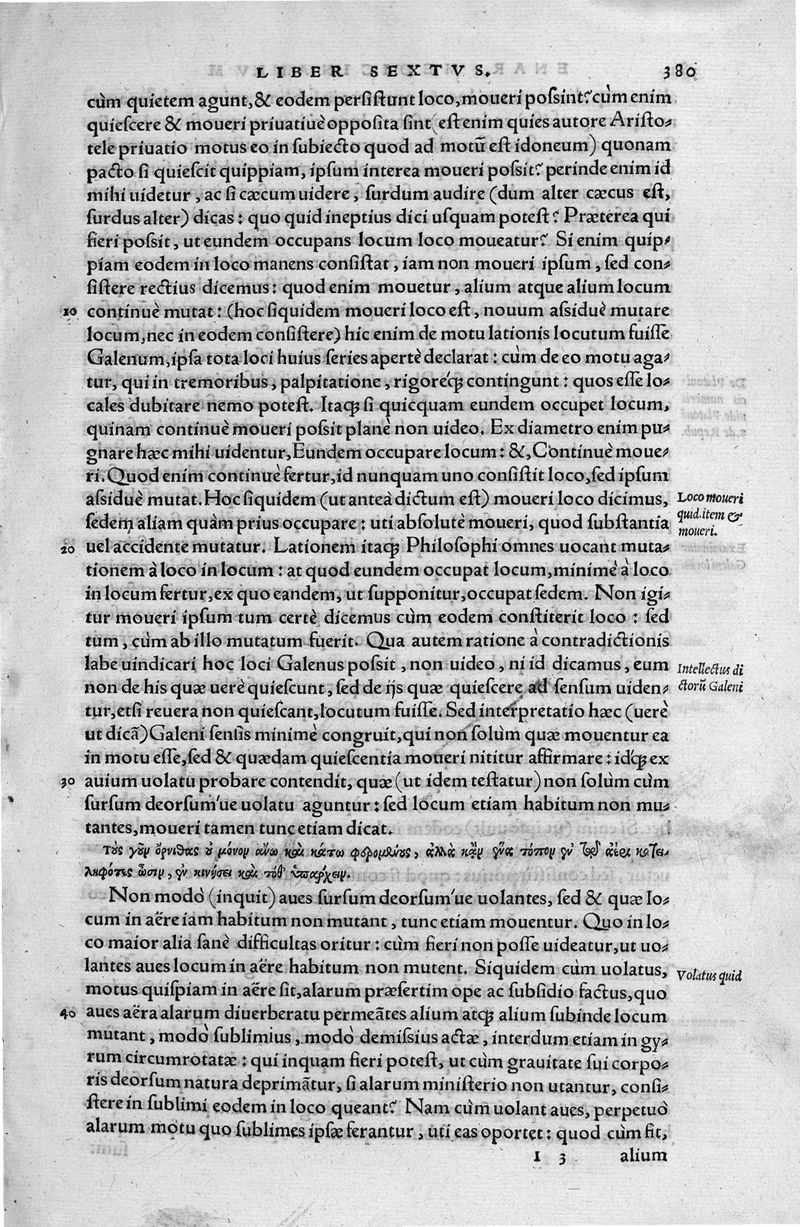 LIBER SEXTVS. 380
cùm quietem agunt, & eodem persistunt loco, moueri possint? cùm enim
quiescere & moueri priuatiuè opposita sint (est enim quies autore Aristo-
tele priuatio motus eo in subiecto quod ad motũ est idoneum) quonam
pacto si quiescit quippiam, ipsum interea moueri possit? perinde enim id
mihi uidetur, ac si cæcum uidere, surdum audire (dum alter cæcus est,
surdus alter) dicas: quo quid ineptius dici usquam potest? Præterea qui
fieri possit, ut eundem occupans locum loco moueatur? Si enim quip-
piam eodem in loco manens consistat, iam non moueri ipsum, sed con-
sistere rectius dicemus: quod enim mouetur, alium atque alium locum
10 continuè mutat: (hoc siquidem moueri loco est, nouum assiduè mutare
locum, nec in eodem consistere) hic enim de motu lationis locutum fuisse
Galenum, ipsa tota loci huius series apertè declarat: cùm de eo motu aga-
tur, qui in tremoribus, palpitatione, rigoreq́; contingunt: quos esse lo-
cales dubitare nemo potest. Itaq; si quicquam eundem occupet locum,
quinam continuè moueri possit planè non uideo. Ex diametro enim pu-
gnare hæc mihi uidentur, Eundem occupare locum: &, Continuè moue-
ri. Quod enim continuè fertur, id nunquam uno consistit loco, sed ipsum
assiduè mutat. Hoc siquidem (ut anteà dictum est) moueri loco dicimus,
Loco moueri
sedem aliam quàm prius occupare: uti absolutè moueri, quod substantia
quid. item &
moueri.
20 uel accidente mutatur. Lationem itaq; Philosophi omnes uocant muta-
tionem à loco in locum: at quod eundem occupat locum, minimè à loco
in locum fertur, ex quo eandem, ut supponitur, occupat sedem. Non igi-
tur moueri ipsum tum certè dicemus cùm eodem constiterit loco: sed
tum, cùm ab illo mutatum fuerit. Qua autem ratione à contradictionis
labe uindicari hoc loci Galenus possit, non uideo, ni id dicamus, eum
Intellectus di
non de his quæ uerè quiescunt, sed de ijs quæ quiescere ad sensum uiden-
ctorũ Galeni
tur, etsi reuera non quiescant, locutum fuisse. Sed interpretatio hæc (uerè
ut dicã) Galeni sensis minimè congruit, qui non solùm quæ mouentur ea
in motu esse, sed & quædam quiescentia moueri nititur affirmare: idq́; ex
30 auium uolatu probare contendit, quæ (ut idem testatur) non solùm cùm
sursum deorsum'ue uolatu aguntur: sed locum etiam habitum non mu-
tantes, moueri tamen tunc etiam dicat.
τοὺς γοῦν ὄρνιθας οὐ μόνον ἄνω καὶ κάτω φερομένους, ἀλλὰ κἂν ἕνα τόπον ἐν τῷ ἀέρι κατει-
ληφότες ὦσιν, ἐν κινήσει καὶ τόθ' ὑπάρχειν.
Non modò (inquit) aues sursum deorsum'ue uolantes, sed & quæ lo-
cum in aëre iam habitum non mutant, tunc etiam mouentur. Quo in lo-
co maior alia sanè difficultas oritur: cùm fieri non posse uideatur, ut uo-
lantes aues locum in aëre habitum non mutent. Siquidem cùm uolatus,
Volatus quid
motus quispiam in aëre sit, alarum præsertim ope ac subsidio factus, quo
40 aues aëra alarum diuerberatu permeãtes alium atq; alium subinde locum
mutant, modò sublimius, modò demissius actæ, interdum etiam in gy-
rum circumrotatæ: qui inquam fieri potest, ut cùm grauitate sui corpo-
ris deorsum natura deprimãtur, si alarum ministerio non utantur, consi-
stere in sublimi eodem in loco queant? Nam cùm uolant aues, perpetuò
alarum motu quo sublimes ipsæ ferantur, uti eas oportet: quod cùm fit,
I 3 alium